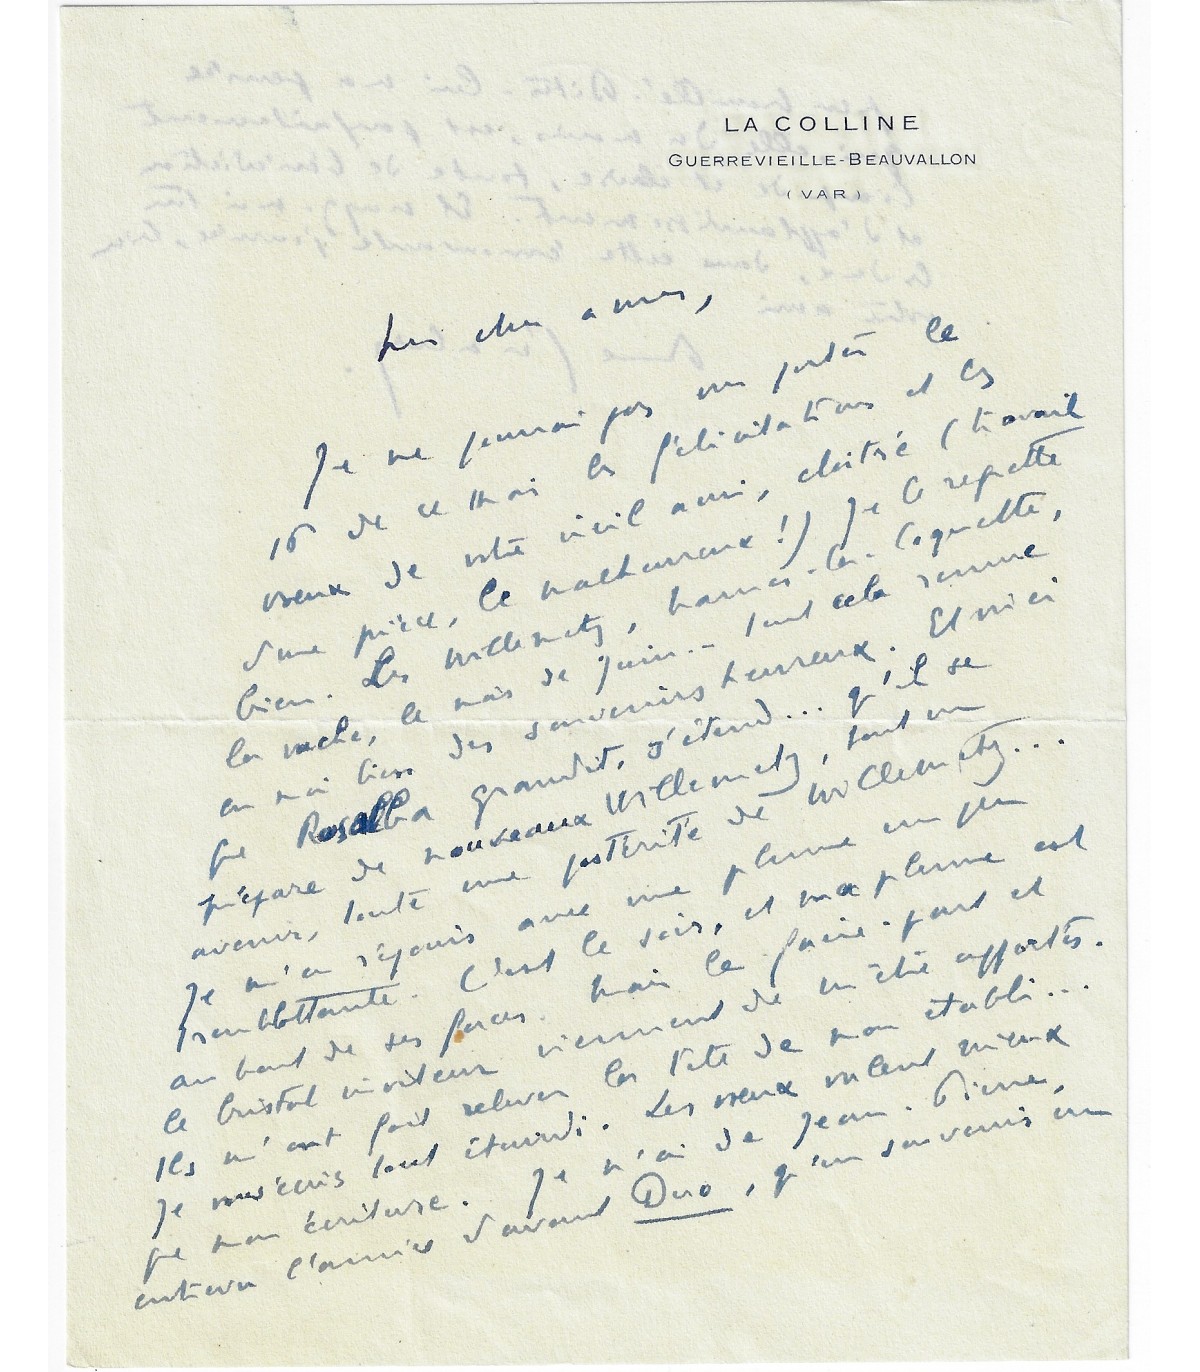 LA COLLINE
GUERREVIEILLE-BEAUVALLON
(VAR)
chers amis,
Je ne pourrai pas vous porter le
16 de ce mai les félicitations et les
vœux de votre vieil ami, cloîtré (travail
d'une pièce, le malheureux!) Je le regrette
bien. Les Willemetz, Marnes-la-Coquette,
la vache, le mois de juin... tout cela ramne
en moi bien des souvenirs heureux. Et voici
que Rosalba grandit, s'étend... qu'il se
prépare de nouveaux Willemetz, tout un
avenir, toute une postérité de Willemetz...
Je m'en réjouis avec une plume un peu
tremblottante. C'est le soir, et ma plume est
au bout de ses forces. Mais le faire-part et
le bristol inviteur viennent de m'être apportés.
Ils m'ont fait relever la tête de mon établi...
Je vous écris tout étourdi. Les vœux valent mieux
que mon écriture. Je n'ai de Jean-Pierre,
entrevu l'année d'avant Dero, qu'un souvenir un